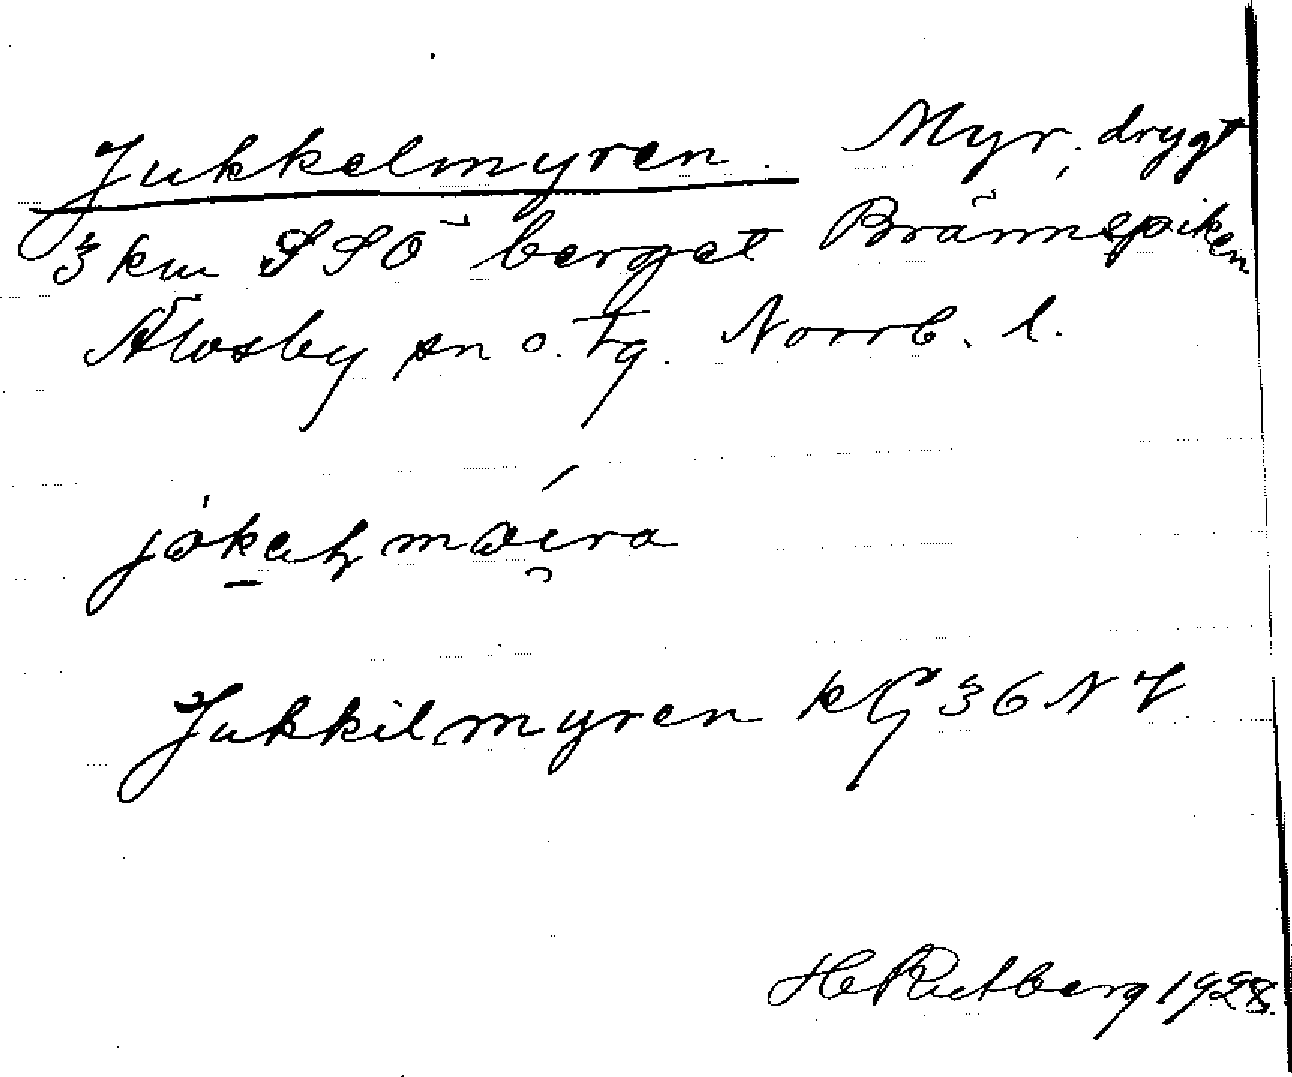 Jukkelmyren. Myr, drygt
3 km SSÖ berget Brännspiken
Älvsby sn o. tg. Norrb. l.
Jukkilmyren kG 36 NV
H Rutberg 1928.